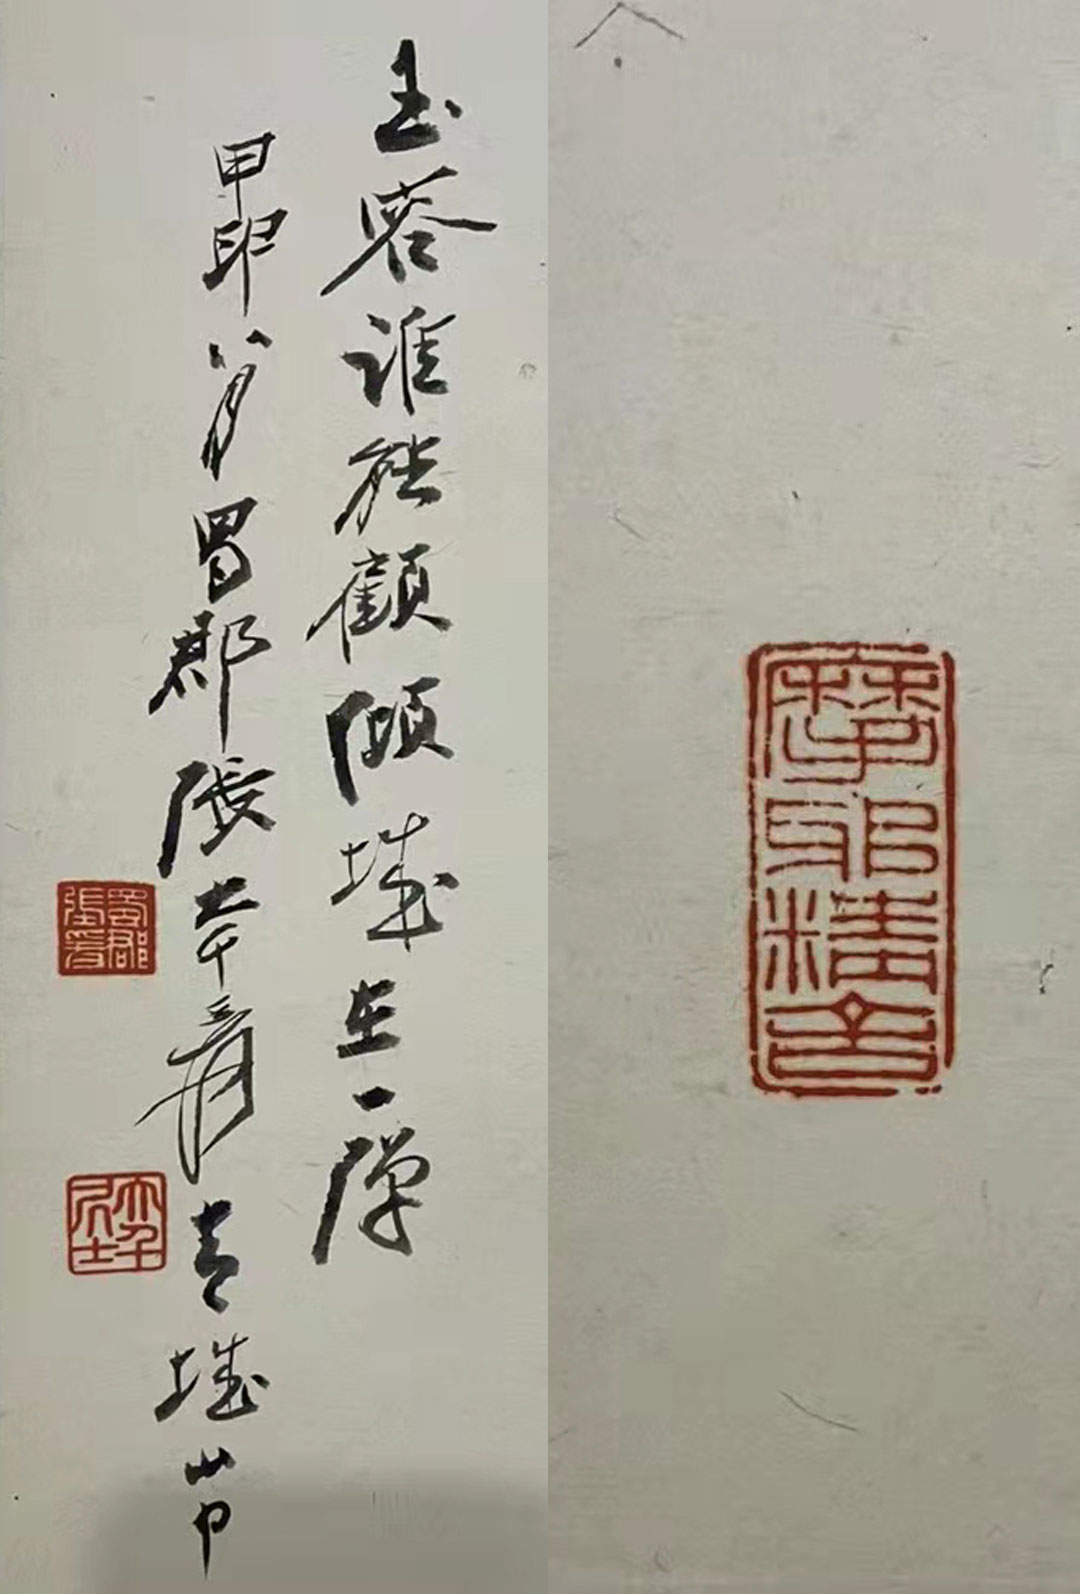 玉容誰能顧傾城在一彈
甲卯八月蜀郡張大千爰青城山中
蜀郡張爰
大千居士
摩耶精舍